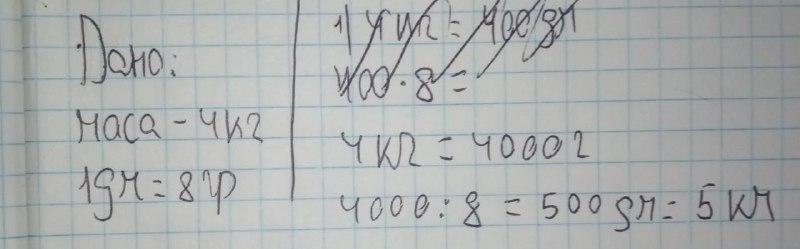 Дано:
маса - 4кг
1дм = 8гр
1) 4кг = 400дм
400 · 8 =
4кг = 4000г
4000 : 8 = 500дм = 5км